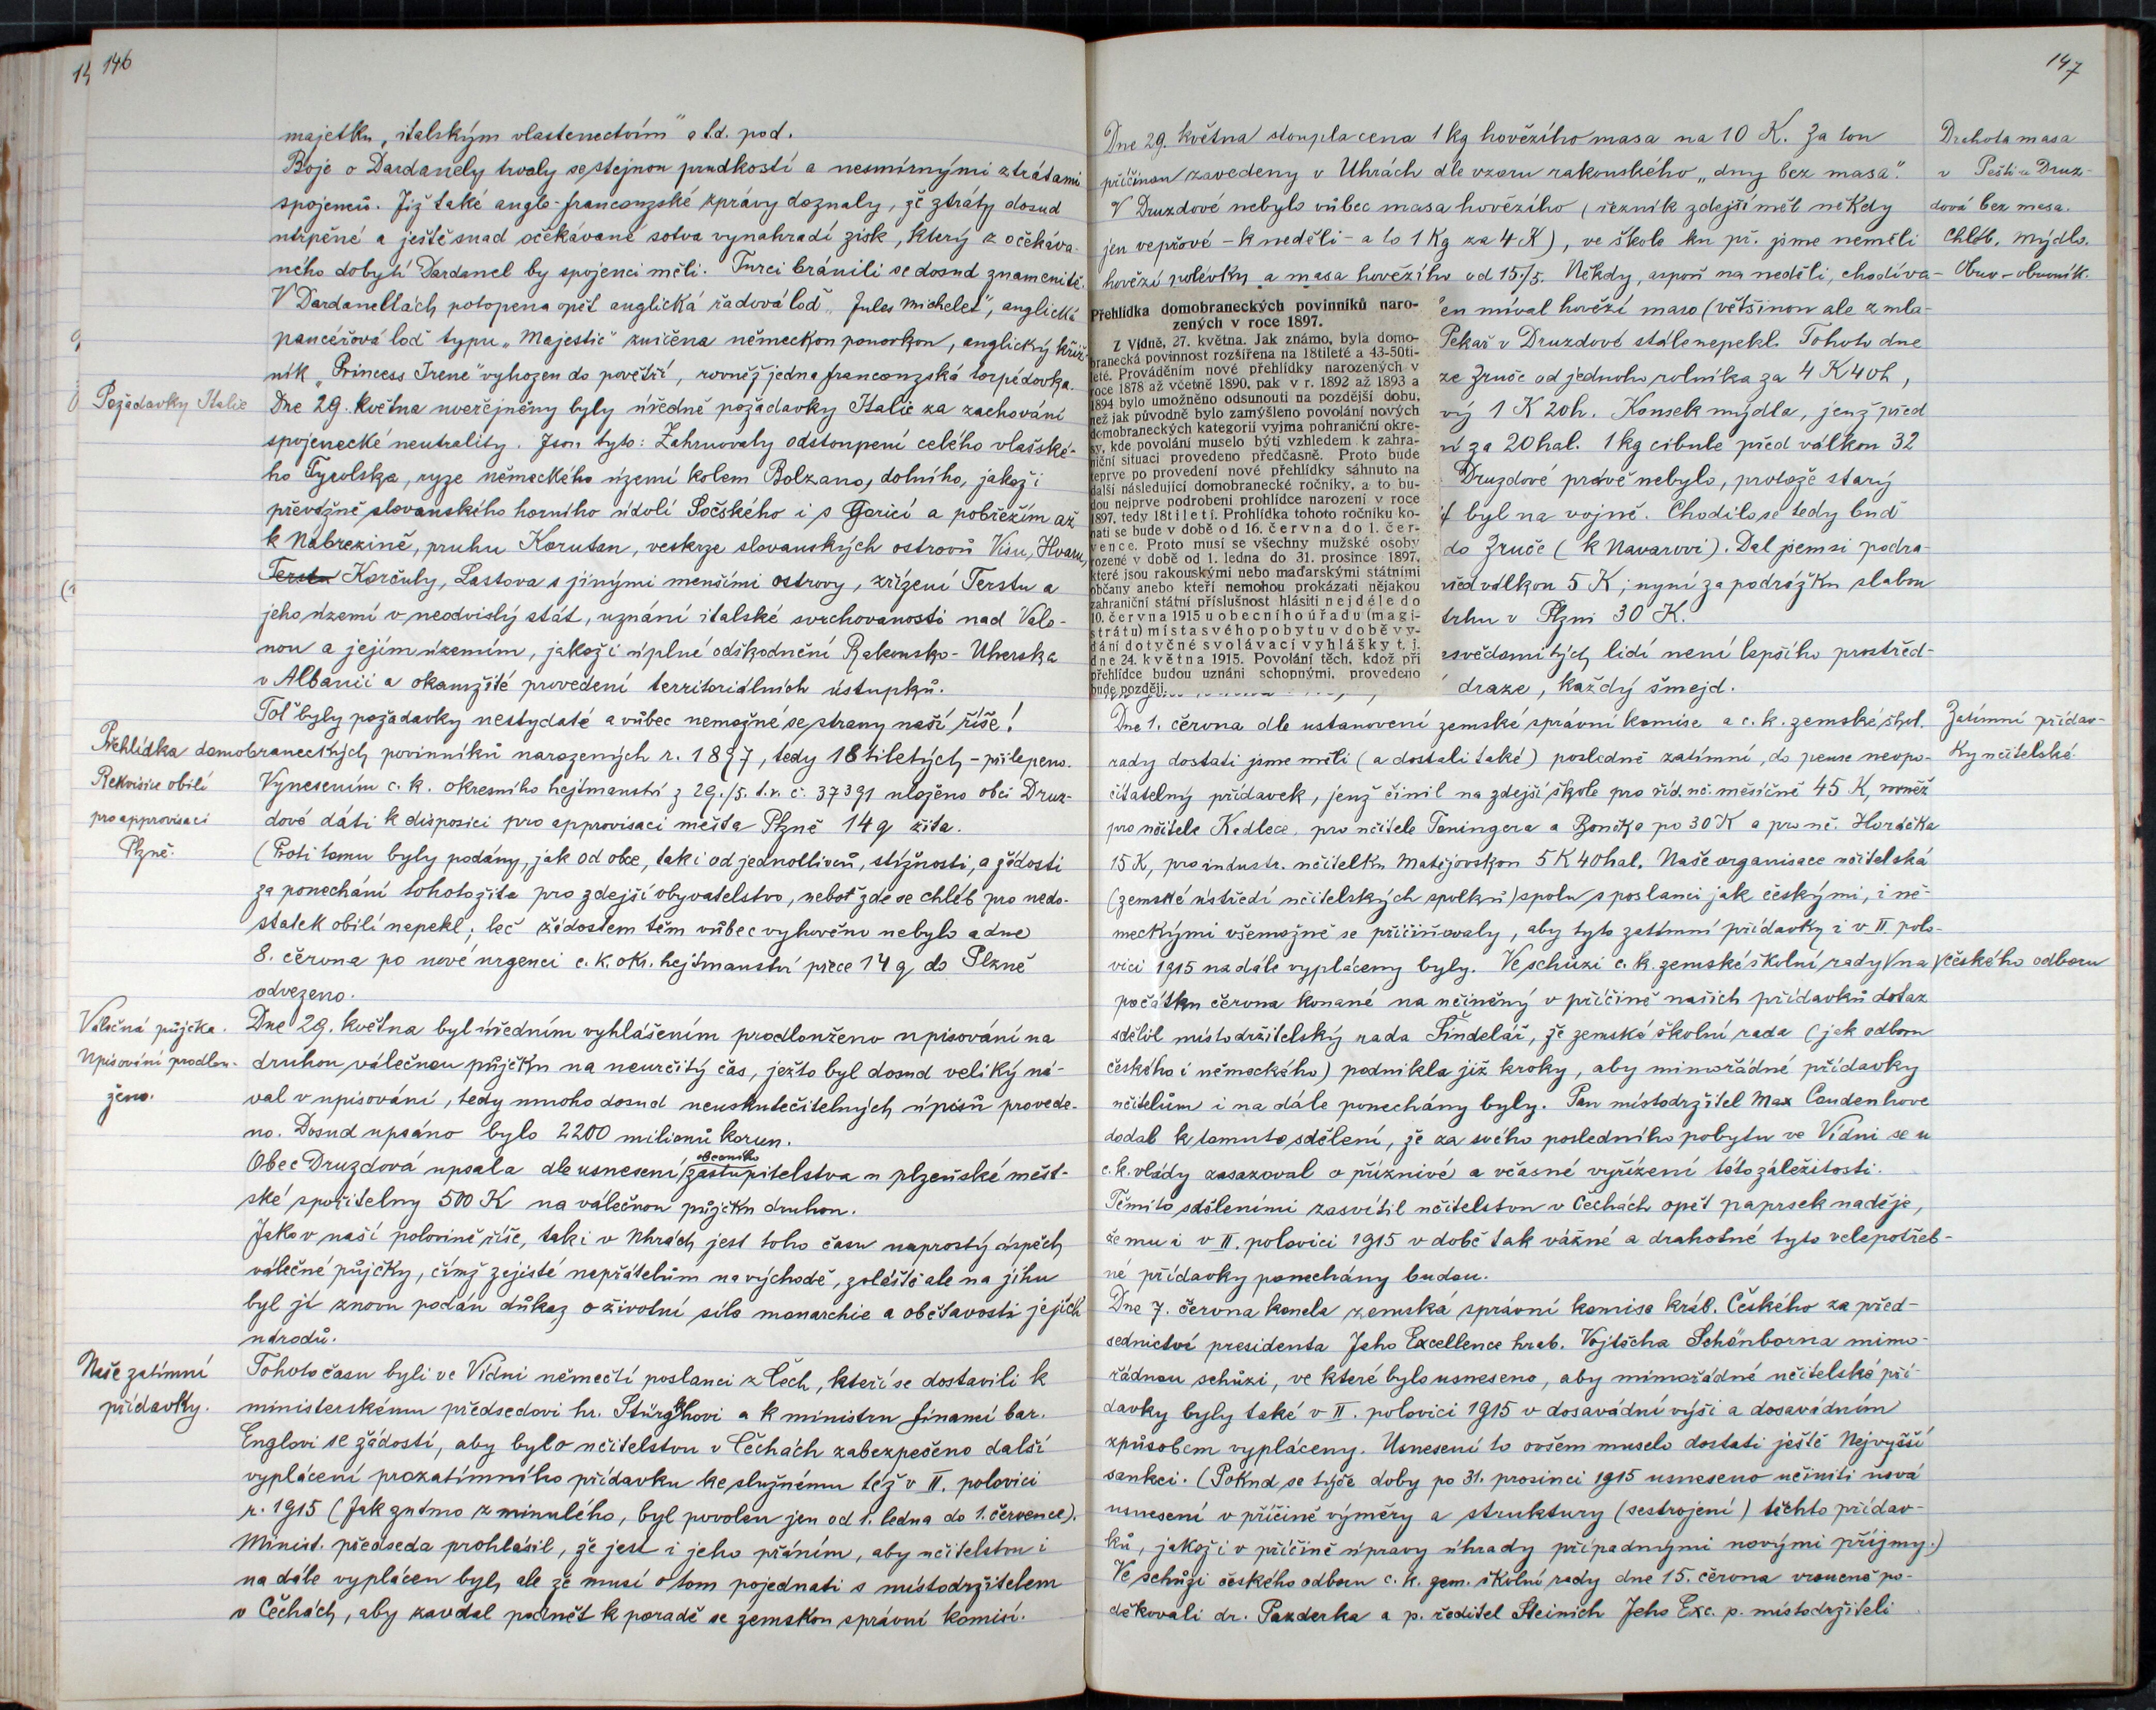 146
majetku, „italským vlastenectvím" a t.d. pod.
Boje o Dardanely trvaly se stejnou prudkostí a nesmírnými ztrátami
spojenců. Již také anglo-francouzské zprávy doznaly, že ztráty dosud
utrpěné a ještě snad očekávané sotva vynahradí zisk, který z očekáva-
ného dobytí Dardanel by spojenci měli. Turci bránili se dosud znamenitě.
V Dardanellách potopena opět anglická řadová loď „Jules Michelet", anglická
pancéřová loď typu „Majestic" zničena německou ponorkou, anglický křiž-
ník „Princess Irene" vyhozen do povětří, rovněž jedna francouzská torpédovka.
Požadavky Italie
Dne 29. května uveřejněny byly úředně požadavky Italie za zachování
spojenecké neutrality. Jsou tyto: Zahrnovaly odstoupení celého vlašské-
ho Tyrolska, ryze německého území kolem Bolzano, dolního, jakož i
převážně slovanského horního údolí Sočského i s Goricí a pobřežím až
k Nabrezině, pruhu Korutan, veskrze slovanských ostrovů Visu, Hvaru,
Terstu Korčuly, Lastova s jinými menšími ostrovy, zřízení Terstu a
jeho území v neodvislý stát, uznání italské svrchovanosti nad Valo-
nou a jejím územím, jakož i úplné odškodnění Rakousko-Uherska
v Albanii a okamžité provedení territoriálních ústupků.
Toť byly požadavky nestydaté a vůbec nemožné se strany naší říše!
Přehlídka domobraneckých povinníků narozených r. 1897, tedy 18tiletých - přilepeno.
Rekvisice obilí
pro approvisaci
Plzně.
Vynesením c. k. okresního hejtmanství z 29./5. t.r. č. 37391 uloženo obci Druz-
dové dáti k disposici pro approvisaci města Plzně 14 q žita.
(Proti tomu byly podány, jak od obce, tak i od jednotlivců, stížnosti, a žádosti
za ponechání tohoto žita pro zdejší obyvatelstvo, neboť zde se chléb pro nedo-
statek obilí nepekl; leč žádostem těm vůbec vyhověno nebylo a dne
8. června po nové urgenci c. k. okr. hejtmanství přece 14 q do Plzně
odvezeno.
Válečná půjčka.
Upisování prodlou-
ženo.
Dne 29. května byl úředním vyhlášením prodlouženo upisování na
druhou válečnou půjčku na neurčitý čas, ježto byl dosud veliký ná-
val v upisování, tedy mnoho dosud neuskutečitelných úpisů provede-
no. Dosud upsáno bylo 2200 milionů korun.
Obec Druzdová upsala dle usnesení obecního zastupitelstva u plzeňské měst-
ské spořitelny 500 K na válečnou půjčku druhou.
Jako v naší polovině říše, tak i v Uhrách jest toho času naprostý úspěch
válečné půjčky, čímž zejisté nepřátelům na východě, zvláště ale na jihu
byl jí znovu podán důkaz o životní síle monarchie a obětavosti jejích
národů.
Naše zatímní
přídavky.
Tohoto času byli ve Vídni němečtí poslanci z Čech, kteří se dostavili k
ministerskému předsedovi hr. Stürgkhovi a k ministru financí bar.
Englovi se žádostí, aby bylo učitelstvu v Čechách zabezpečeno další
vyplácení prozatímního přídavku ke služnému též v II. polovici
r. 1915 (jak gutmo z minulého, byl povolen jen od 1. ledna do 1. července).
Minist. předseda prohlásil, že jest i jeho přáním, aby učitelstvu i
na dále vyplácen byl, ale že musí o tom pojednati s místodržitelem
v Čechách, aby zavdal podnět k poradě se zemskou správní komisí.
147
Dne 29. května stoupla cena 1 kg hovězího masa na 10 K. Za tou
příčinou zavedeny v Uhrách dle vzoru rakouského „dny bez masa".
V Druzdové nebylo vůbec masa hovězího (řezník zdejší měl někdy
jen vepřové - k neděli - a to 1 Kg za 4 K), ve škole ku př. jsme neměli
hovězí polévky a masa hovězího od 15./5. Někdy, aspoň na neděli, chodíva-
Drahota masa
v Pešti a Druz-
dová bez masa.
Chléb. Mýdlo.
Obuv - obuvník.
Přehlídka domobraneckých povinníků naro-
zených v roce 1897.
Z Vídně, 27. května. Jak známo, byla domo-
branecká povinnost rozšířena na 18tileté a 43-50ti-
leté. Prováděním nové přehlídky narozených v
roce 1878 až včetně 1890, pak v r. 1892 až 1893 a
1894 bylo umožněno odsunouti na pozdější dobu,
než jak původně bylo zamýšleno povolání nových
domobraneckých kategorií vyjma pohraniční okre-
sy, kde povolání muselo býti vzhledem k zahra-
niční situaci provedeno předčasně. Proto bude
teprve po provedení nové přehlídky sáhnuto na
další následující domobranecké ročníky, a to bu-
dou nejprve podrobeni prohlídce narození v roce
1897, tedy 18tiletí. Prohlídka tohoto ročníku ko-
nati se bude v době od 16. června do 1. čer-
vence. Proto musí se všechny mužské osoby
rozené v době od 1. ledna do 31. prosince 1897,
které jsou rakouskými nebo maďarskými státními
občany anebo kteří nemohou prokázati nějakou
zahraniční státní příslušnost hlásiti nejdéle do
10. června 1915 u obecního úřadu (magi-
strátu) místa svého pobytu v době vy-
dání dotyčné svolávací vyhlášky t. j.
dne 24. května 1915. Povolání těch, kdož při
přehlídce budou uznáni schopnými, provedeno
bude později.
en míval hovězí maso (většinou ale z mla-
Pekař v Druzdové stále nepekl. Tohoto dne
ze Zruče od jednoho rolníka za 4 K 40h,
vý 1 K 20h. Kousek mýdla, jenž před
ní za 20hal. 1 kg cibule před válkou 32
Druzdové právě nebylo, protože starý
byl na vojně. Chodilo se tedy buď
do Zruče (k Navarovi). Dal jsem si podra-
před válkou 5 K; nyní za podrážku slabou
trhu v Plzni 30 K.
esvědomitých lidí není lepšího prostřed-
draze, každý šmejd.
Dne 1. června dle ustanovení zemské správní komise a c. k. zemské škol.
rady dostati jsme měli (a dostali také) posledně zatímní, do pense nevpo-
čitatelný přídavek, jenž činil na zdejší škole pro říd. uč. měsíčně 45 K, rovněž
pro učitele Kedlece, pro učitele Teningera a Bončka po 30 K a pro uč. Horáčka
15 K, pro industr. učitelku Matějovskou 5 K 40hal. Naše organisace učitelská
(zemské ústředí učitelských spolků) spolu s poslanci jak českými, i ně-
meckými všemožně se přičiňovaly, aby tyto zatímní přídavky i v II. polo-
vici 1915 na dále vypláceny byly. Ve schůzi c. k. zemské školní rady českého odboru na
počátku června konané na učiněný v příčině našich přídavků dotaz
sdělil místodržitelský rada Šindelář, že zemská školní rada (jak odboru
českého i německého) podnikla již kroky, aby mimořádné přídavky
učitelům i na dále ponechány byly. Pan místodržitel Max Coudenhove
dodal k tomuto sdělení, že za svého posledního pobytu ve Vídni se u
c. k. vlády zasazoval o příznivé a včasné vyřízení této záležitosti.
Těmito sděleními zasvítil učitelstvu v Čechách opět paprsek naděje,
že mu i v II. polovici 1915 v době tak vážné a drahotné tyto velepotřeb-
né přídavky ponechány budou.
Zatímní přídav-
ky učitelské.
Dne 7. června konala zemská správní komise král. Českého za před-
sednictví presidenta Jeho Excellence hrab. Vojtěcha Schönborna mimo-
řádnou schůzi, ve které bylo usneseno, aby mimořádné učitelské pří-
davky byly také v II. polovici 1915 v dosavádní výši a dosavádním
způsobem vypláceny. Usnesení to ovšem muselo dostati ještě Nejvyšší
sankci. (Pokud se týče doby po 31. prosinci 1915 usneseno učiniti nová
usnesení v příčině výměry a struktury (sestrojení) těchto přídav-
ků, jakož i v příčině úpravy úhrady případnými novými příjmy.)
Ve schůzi českého odboru c. k. zem. školní rady dne 15. června vroucně po-
děkovali dr. Pazderka a p. ředitel Steinich Jeho Exc. p. místodržiteli